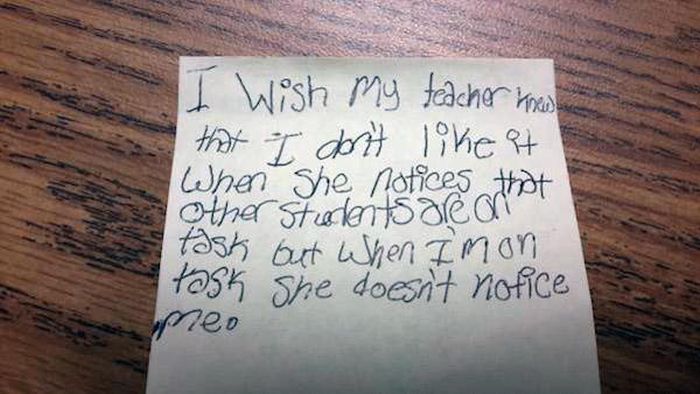 I Wish My teacher knew
that I don't like it
When She notices that
other students are on
task but when I'm on
task She doesn't notice
me.